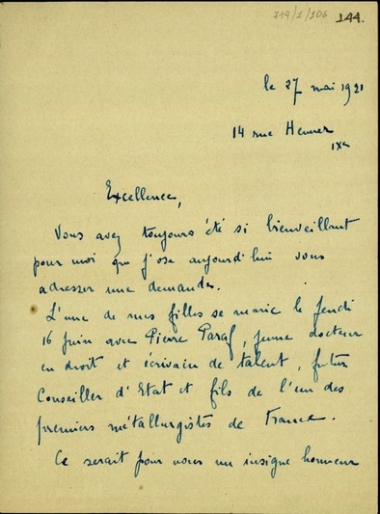 214/1/106 144.
le 27 mai 1921
14 rue Henner
IXe
Excellence,
Vous avez toujours été si bienveillant
pour moi que j'ose aujourd'hui vous
adresser une demande.
L'une de mes filles se marie le jeudi
16 juin avec Pierre Paraf, jeune docteur
en droit et écrivain de talent, futur
Conseiller d'Etat et fils de l'un des
premiers métallurgistes de France.
Ce serait pour nous un insigne honneur